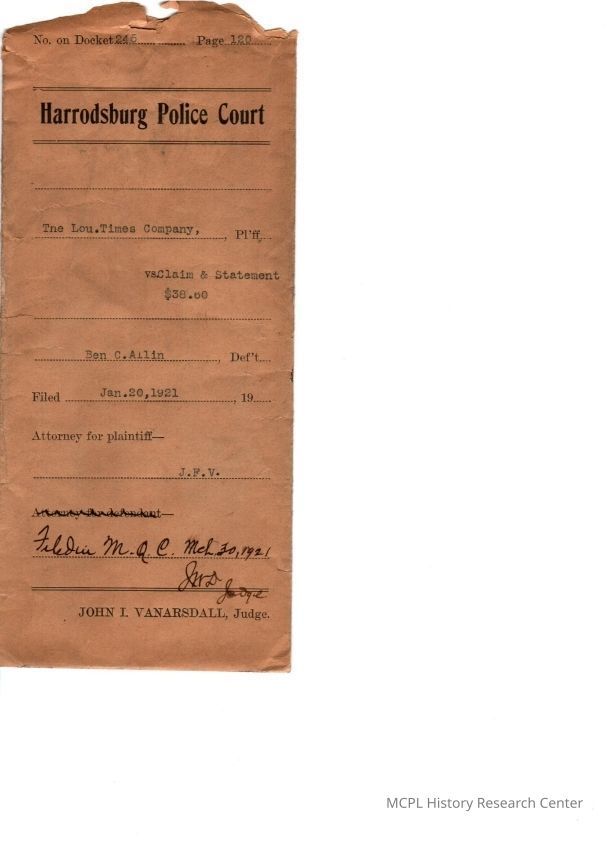 No. on Docket 246 Page 120
Harrodsburg Police Court
Tne Lou.Times Company, , Pl'ff.
vs.Claim & Statement
$38.60
Ben C.Allin , Def't.
Filed Jan.20,1921 , 19
Attorney for plaintiff—
J.F.V.
Attorney for defendant—
Filed in M. Q. C. Mch 30, 1921
Judge
JOHN I. VANARSDALL, Judge.
MCPL History Research Center